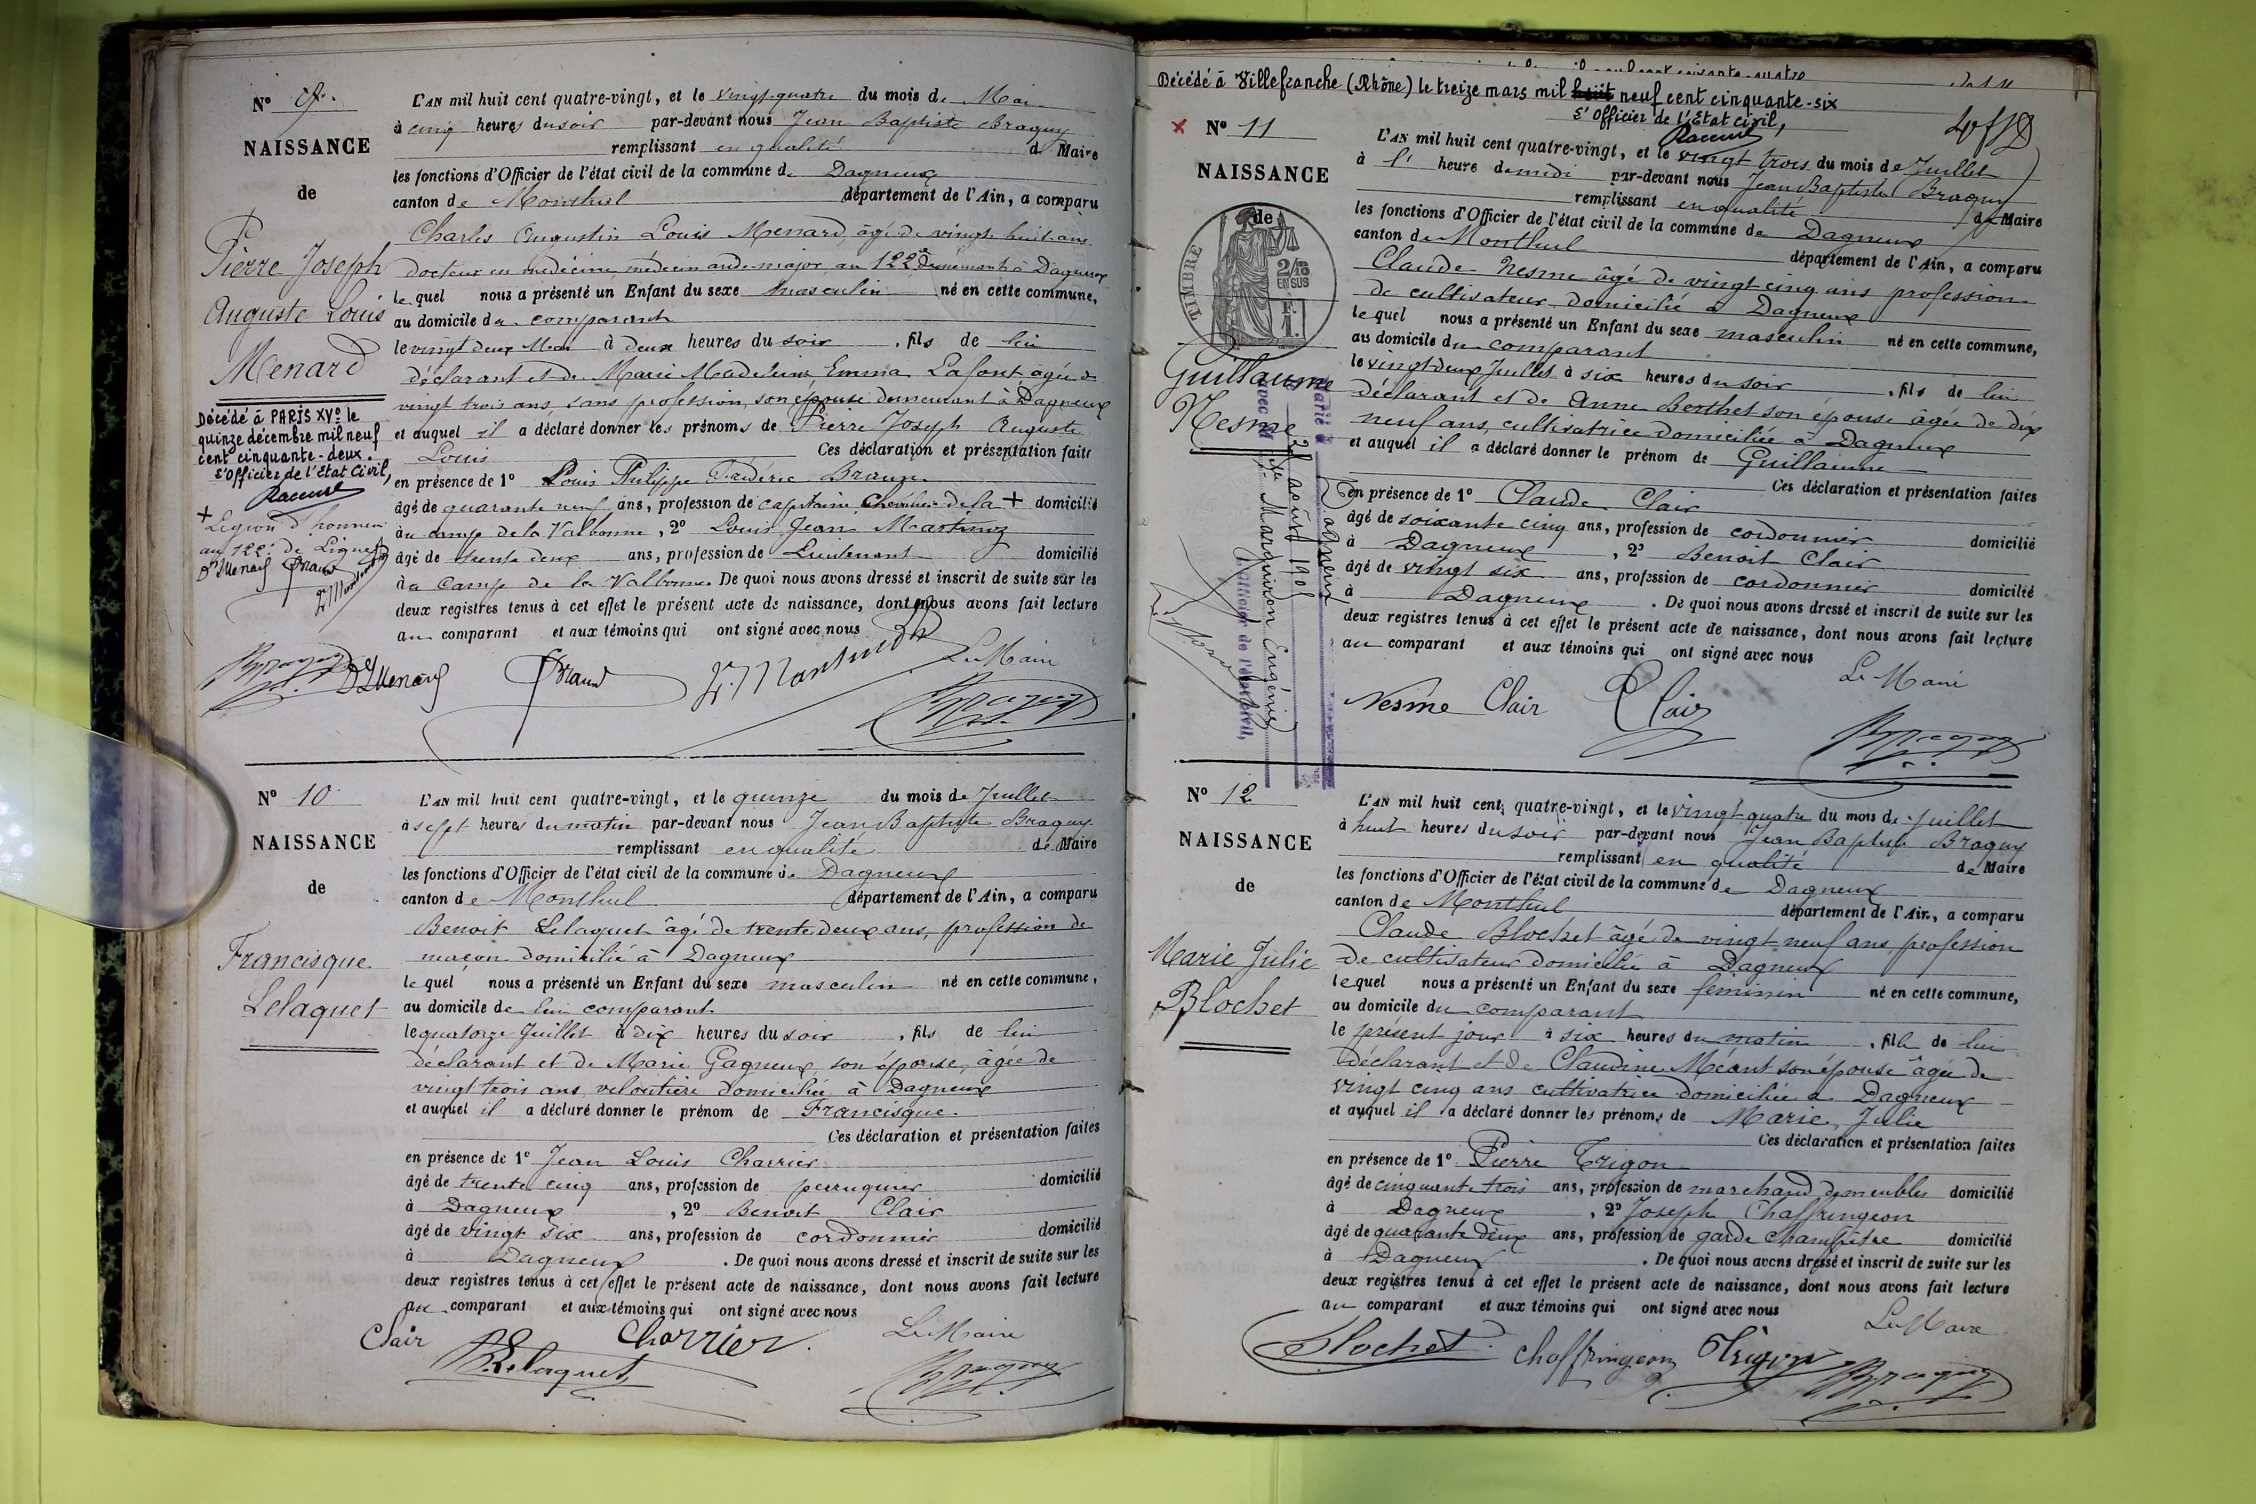 N° 9.
NAISSANCE
de
Pierre Joseph
Auguste Louis
Menard
Décédé à PARIS XVe le
quinze décembre mil neuf
cent cinquante-deux.
L'Officier de l'Etat Civil,
Racurel
+ Légion d'honneur
au 122e de Ligne
Dr LMenard Braun
L'AN mil huit cent quatre-vingt, et le vingt-quatre du mois de Mai
à cinq heures du soir par-devant nous Jean Baptiste Braguy
remplissant en qualité de Maire
les fonctions d'Officier de l'état civil de la commune de Dagneux
canton de Montluel département de l'Ain, a comparu
Charles Augustin Louis Menard, âgé de vingt huit ans
docteur en médecine médecin aide-major au 122e demeurant à Dagneux
lequel nous a présenté un Enfant du sexe masculin né en cette commune,
au domicile du comparant
le vingt deux Mai à deux heures du soir, fils de lui
déclarant et de Marie Madeleine Emma Lafont âgée de
vingt trois ans, sans profession, son épouse demeurant à Dagneux
et auquel il a déclaré donner les prénoms de Pierre Joseph Auguste
Louis Ces déclaration et présentation faites
en présence de 1° Louis Philippe Frédéric Braun
âgé de quarante neuf ans, profession de capitaine Chevalier de la + domicilié
au camp de la Valbonne, 2° Louis Jean
âgé de trente deux ans, profession de Lieutenant domicilié
au Camp de la Valbonne. De quoi nous avons dressé et inscrit de suite sur les
deux registres tenus à cet effet le présent acte de naissance, dont nous avons fait lecture
au comparant et aux témoins qui ont signé avec nous
Le Maire
Braguy Dr LMenard Braun
Braguy
N° 10
NAISSANCE
de
Francisque
Lelaquet
L'AN mil huit cent quatre-vingt, et le quinze du mois de Juillet
à sept heures du matin par-devant nous Jean Baptiste Braguy
remplissant en qualité de Maire
les fonctions d'Officier de l'état civil de la commune de Dagneux
canton de Montluel département de l'Ain, a comparu
Benoit Lelaquet âgé de trente deux ans, profession de
maçon domicilié à Dagneux
lequel nous a présenté un Enfant du sexe masculin né en cette commune,
au domicile de lui comparant
le quatorze Juillet à dix heures du soir, fils de lui
déclarant et de Marie Gagneux, son épouse, âgée de
vingt trois ans, veloutière domiciliée à Dagneux
et auquel il a déclaré donner le prénom de Francisque.
Ces déclaration et présentation faites
en présence de 1° Jean Louis Charrier
âgé de trente cinq ans, profession de perruquier domicilié
à Dagneux, 2° Benoit Clair
âgé de vingt six ans, profession de cordonnier domicilié
à Dagneux. De quoi nous avons dressé et inscrit de suite sur les
deux registres tenus à cet effet le présent acte de naissance, dont nous avons fait lecture
au comparant et aux témoins qui ont signé avec nous
Le Maire
Clair Lelaquet Charrier
Braguy
Décédé à Villefranche (Rhône) le treize mars mil huit neuf cent cinquante-six
L'Officier de l'Etat civil,
Racurel
N° 11
NAISSANCE
de
TIMBRE
2/10
EN SUS
F.
1.
Guillaume
Nesme
Marié à Dagneux
le 24 août 1901
avec Marduiron Eugénie
L'officier de l'état-civil,
L'AN mil huit cent quatre-vingt, et le vingt trois du mois de Juillet
à l' heure de midi par-devant nous Jean Baptiste Braguy
remplissant en qualité de Maire
les fonctions d'Officier de l'état civil de la commune de Dagneux
canton de Montluel département de l'Ain, a comparu
Claude Nesme âgé de vingt cinq ans profession
de cultivateur domicilié à Dagneux
lequel nous a présenté un Enfant du sexe masculin né en cette commune,
au domicile du comparant
le vingt deux Juillet à six heures du soir, fils de lui
déclarant et de Anne Berthet son épouse âgée de dix
neuf ans, cultivatrice domiciliée à Dagneux
et auquel il a déclaré donner le prénom de Guillaume
Ces déclaration et présentation faites
en présence de 1° Claude Clair
âgé de soixante cinq ans, profession de cordonnier domicilié
à Dagneux, 2° Benoit Clair
âgé de vingt six ans, profession de cordonnier domicilié
à Dagneux. De quoi nous avons dressé et inscrit de suite sur les
deux registres tenus à cet effet le présent acte de naissance, dont nous avons fait lecture
au comparant et aux témoins qui ont signé avec nous
Le Maire
Nesme Clair Clair
Braguy
N° 12
NAISSANCE
de
Marie Julie
Blochet
L'AN mil huit cent quatre-vingt, et le vingt quatre du mois de Juillet
à huit heures du soir par-devant nous Jean Baptiste Braguy
remplissant en qualité de Maire
les fonctions d'Officier de l'état civil de la commune de Dagneux
canton de Montluel département de l'Ain, a comparu
Claude Blochet âgé de vingt neuf ans profession
de cultivateur domicilié à Dagneux
lequel nous a présenté un Enfant du sexe féminin né en cette commune,
au domicile du comparant
le présent jour à six heures du matin, fille de lui
déclarant et de Claudine Méant son épouse âgée de
vingt cinq ans cultivatrice domiciliée à Dagneux
et auquel il a déclaré donner les prénoms de Marie, Julie
Ces déclaration et présentation faites
en présence de 1° Pierre Trigon
âgé de cinquante trois ans, profession de marchand de meubles domicilié
à Dagneux, 2° Joseph Chaffringeon
âgé de quarante deux ans, profession de garde champêtre domicilié
à Dagneux. De quoi nous avons dressé et inscrit de suite sur les
deux registres tenus à cet effet le présent acte de naissance, dont nous avons fait lecture
au comparant et aux témoins qui ont signé avec nous
Le Maire
Blochet Chaffringeon Trigon Braguy